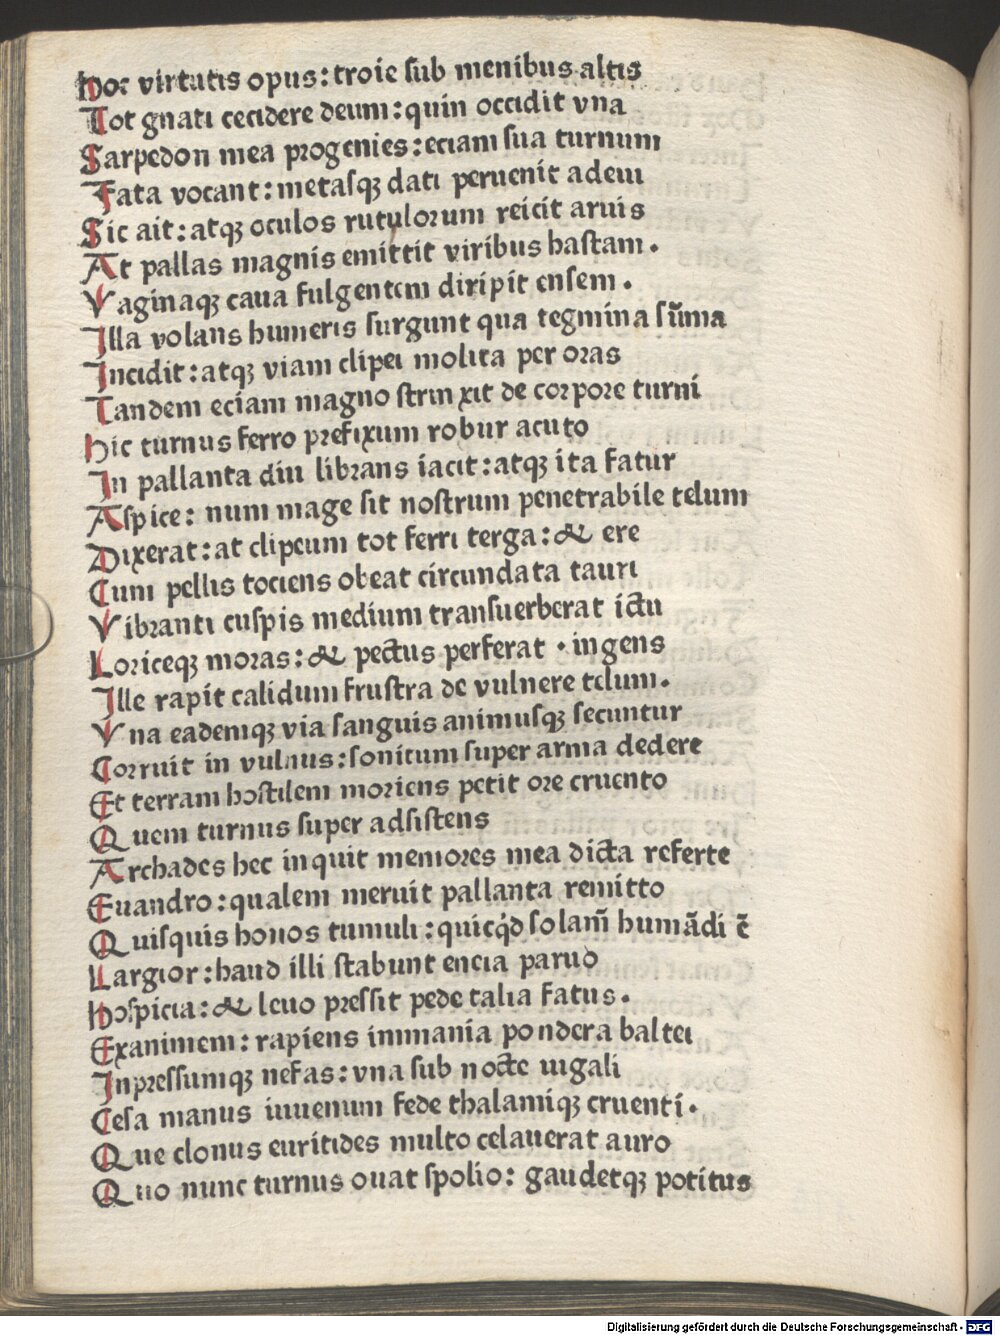 Hoc virtutis opus: troie sub menibus altis
Tot gnati cecidere deum: quin occidit vna
Sarpedon mea progenies: eciam sua turnum
Fata vocant: metasqꝫ dati peruenit ad eui
Sic ait: atqꝫ oculos rutulorum reicit aruis
At pallas magnis emittit viribus hastam.
Vaginaqꝫ caua fulgentem diripit ensem.
Illa volans humeris surgunt qua tegmina sūma
Incidit: atqꝫ viam clipei molita per oras
Tandem eciam magno strinxit de corpore turni
Hic turnus ferro prefixum robur acuto
In pallanta diu librans iacit: atqꝫ ita fatur
Aspice: num mage sit nostrum penetrabile telum
Dixerat: at clipeum tot ferri terga: & ere
Cum pellis tociens obeat circundata tauri
Vibranti cuspis medium transuerberat ictu
Loriceqꝫ moras: & pectus perferat · ingens
Ille rapit calidum frustra de vulnere telum.
Vna eademqꝫ via sanguis animusqꝫ secuntur
Corruit in vulnus: sonitum super arma dedere
Et terram hostilem moriens petit ore cruento
Quem turnus super adsistens
Archades hec inquit memores mea dicta referte
Euandro: qualem meruit pallanta remitto
Quisquis honos tumuli: quicqͥd solam̄ humādi ē
Largior: haud illi stabunt encia paruo
Hospicia: & leuo pressit pede talia fatus.
Exanimem: rapiens inmania pondera baltei
Inpressumqꝫ nefas: vna sub nocte uigali
Cesa manus iuuenum fede thalamiqꝫ cruenti.
Que clonus euritides multo celauerat auro
Quo nunc turnus ouat spolio: gaudetqꝫ potitus
Digitalisierung gefördert durch die Deutsche Forschungsgemeinschaft - DFG